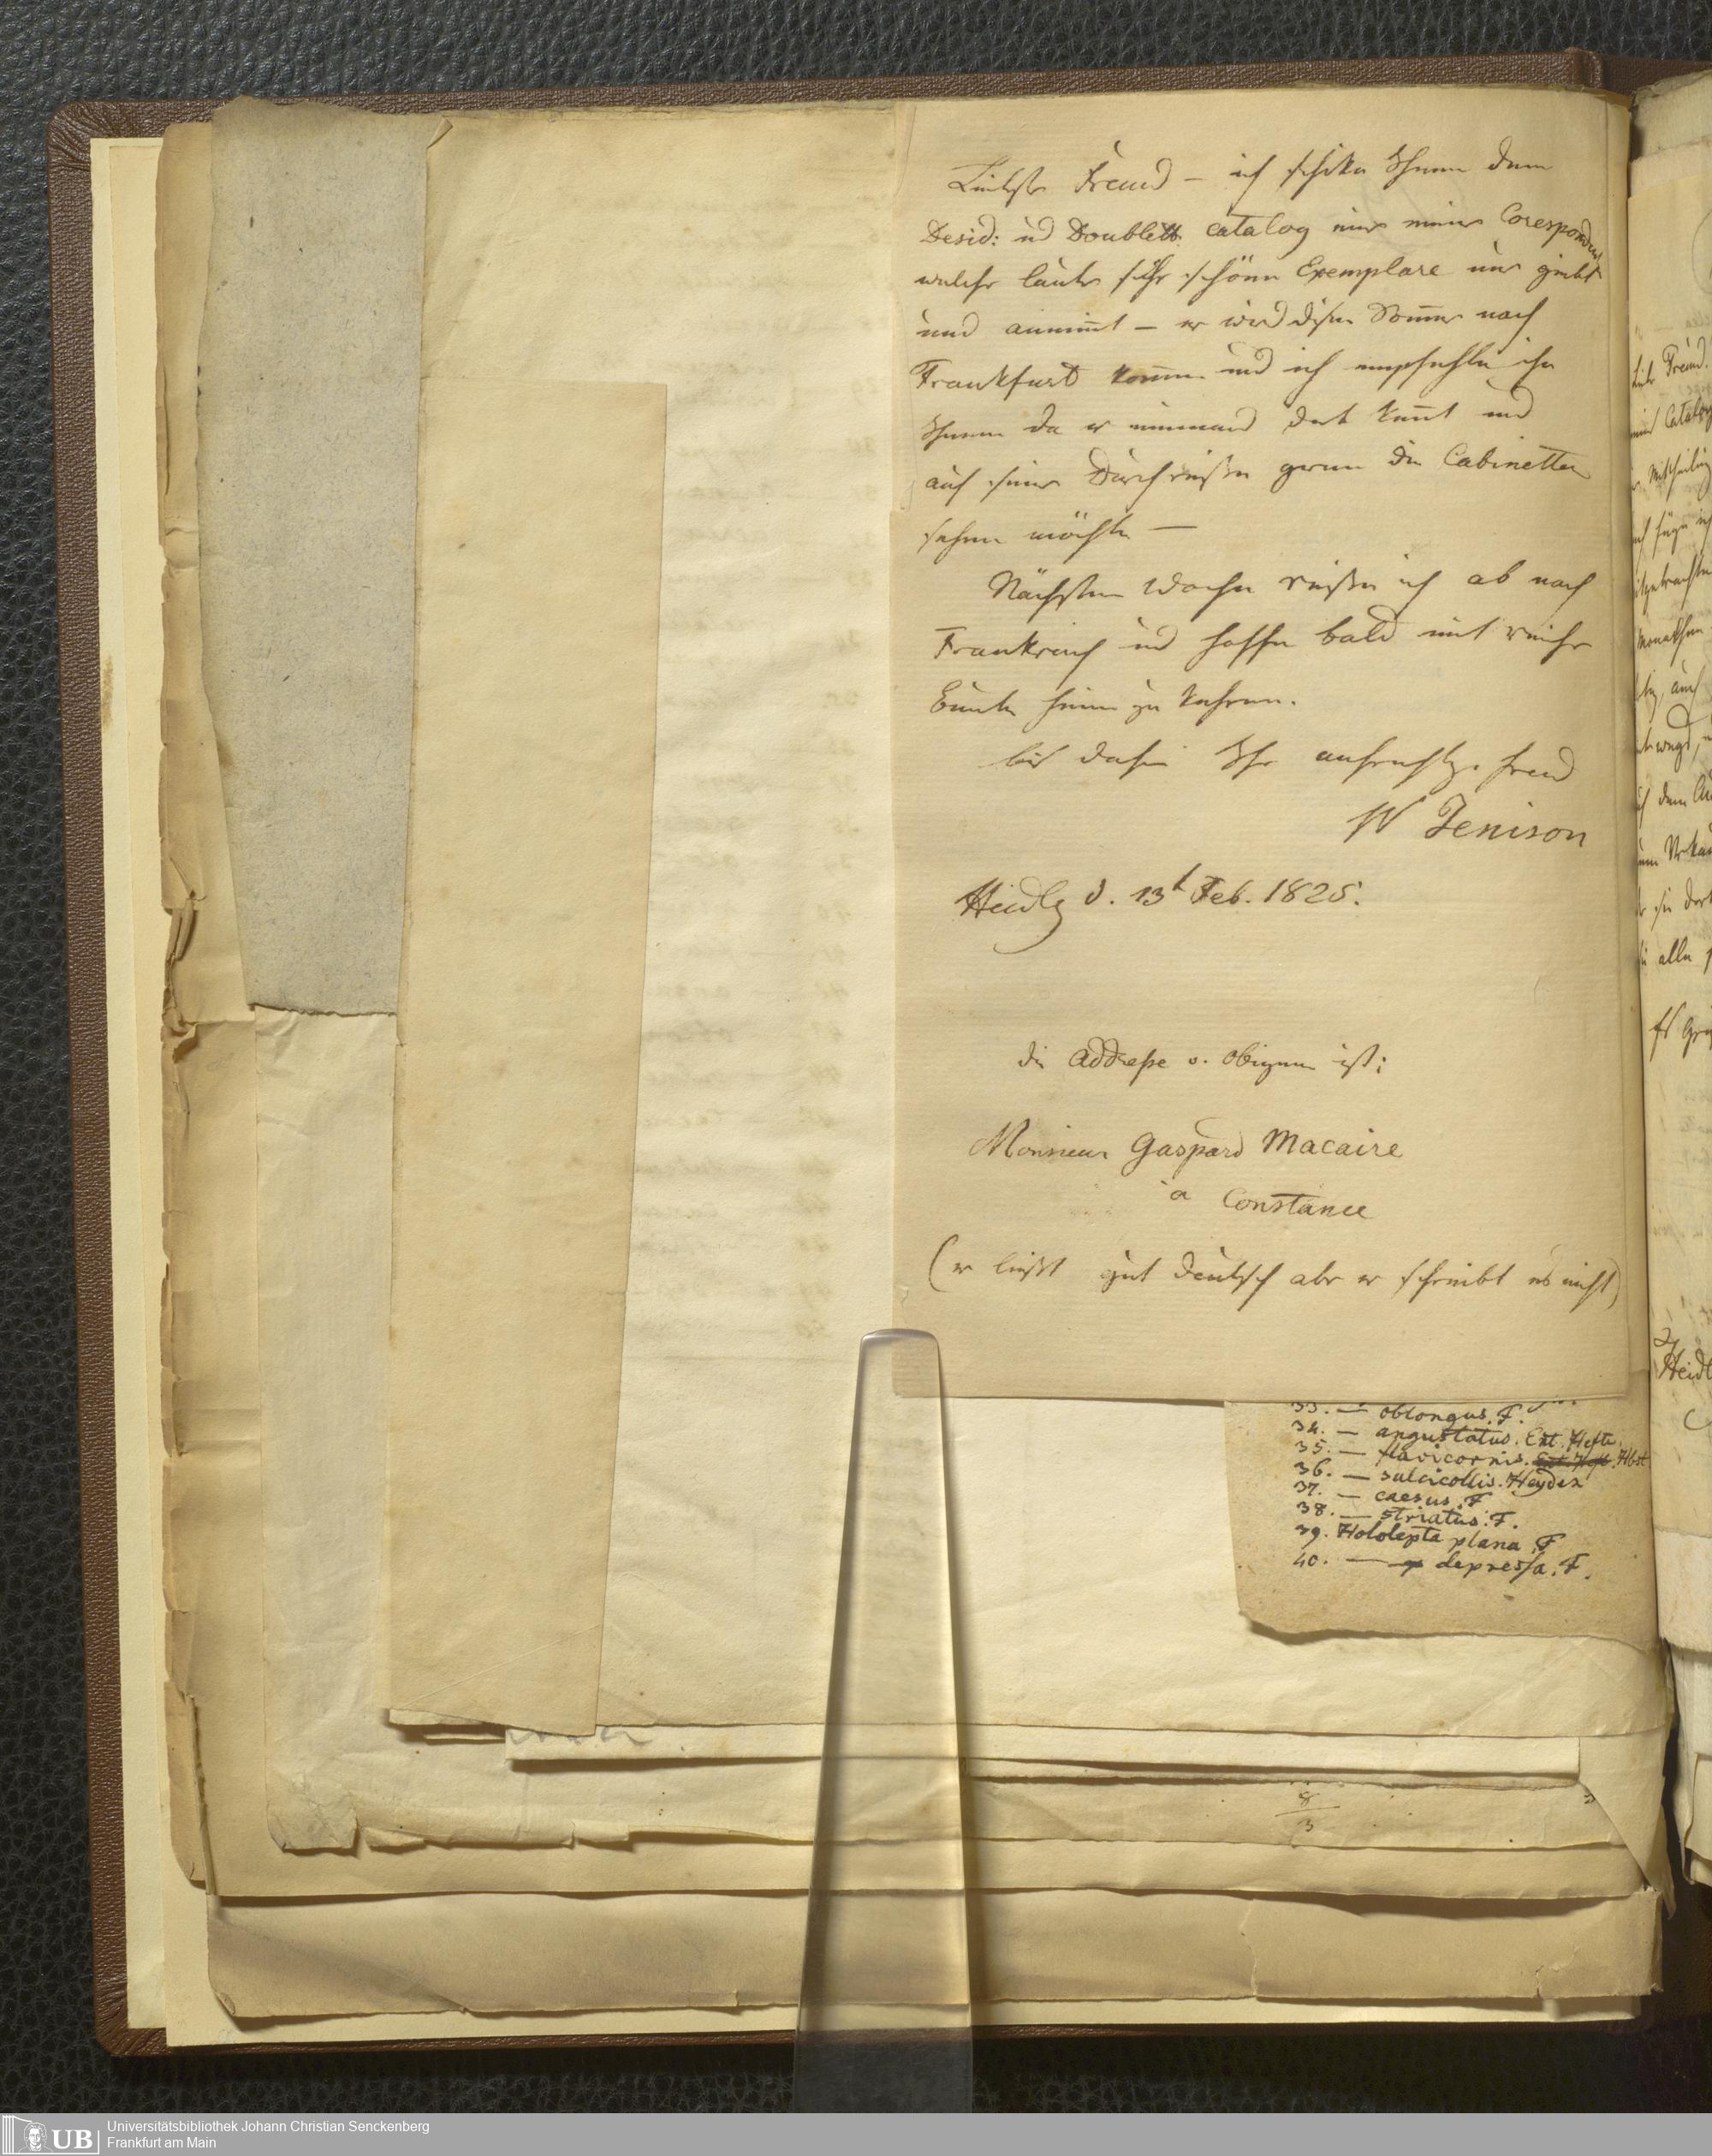 Liebster Freund – ich schike Ihnen den
Desid: ud Doublett. Catalog eines meiner Corespondent
welcher lauter sehr schöne Exemplare nur giebt
und annim̄t – er wird diesen Som̄er nach
Frankfurt kom̄en und ich empfehle ihn
Ihnen da er niemand dort kan̄t und
auf seiner Durchreise gerne die Cabinetter
sehen möchte –
Nächsten Woche reise ich ab nach
Frankreich ud hoffe bald mit reicher
Beute heim zu kehren.
bis dahin Ihr aufrichtiger freund
W Jenison
Heidlg d. 13t Feb. 1825.
die Addresse v. obigem ist:
Monsieur Gaspard Macaire
a Constance
(er liest gut deutsch aber er schreibt es nicht)
33. — oblongus. F.
34. — angustatus. Ent. Hefte.
35. — flavicornis. Hbst
36. — sulcicollis. Heyden
37. — caesus. F
38. — striatus. F.
39. Hololepta plana. F
40. — depressa. F.
8
3
Freund.
Catalog
alle
Universitätsbibliothek Johann Christian Senckenberg
Frankfurt am Main
UB